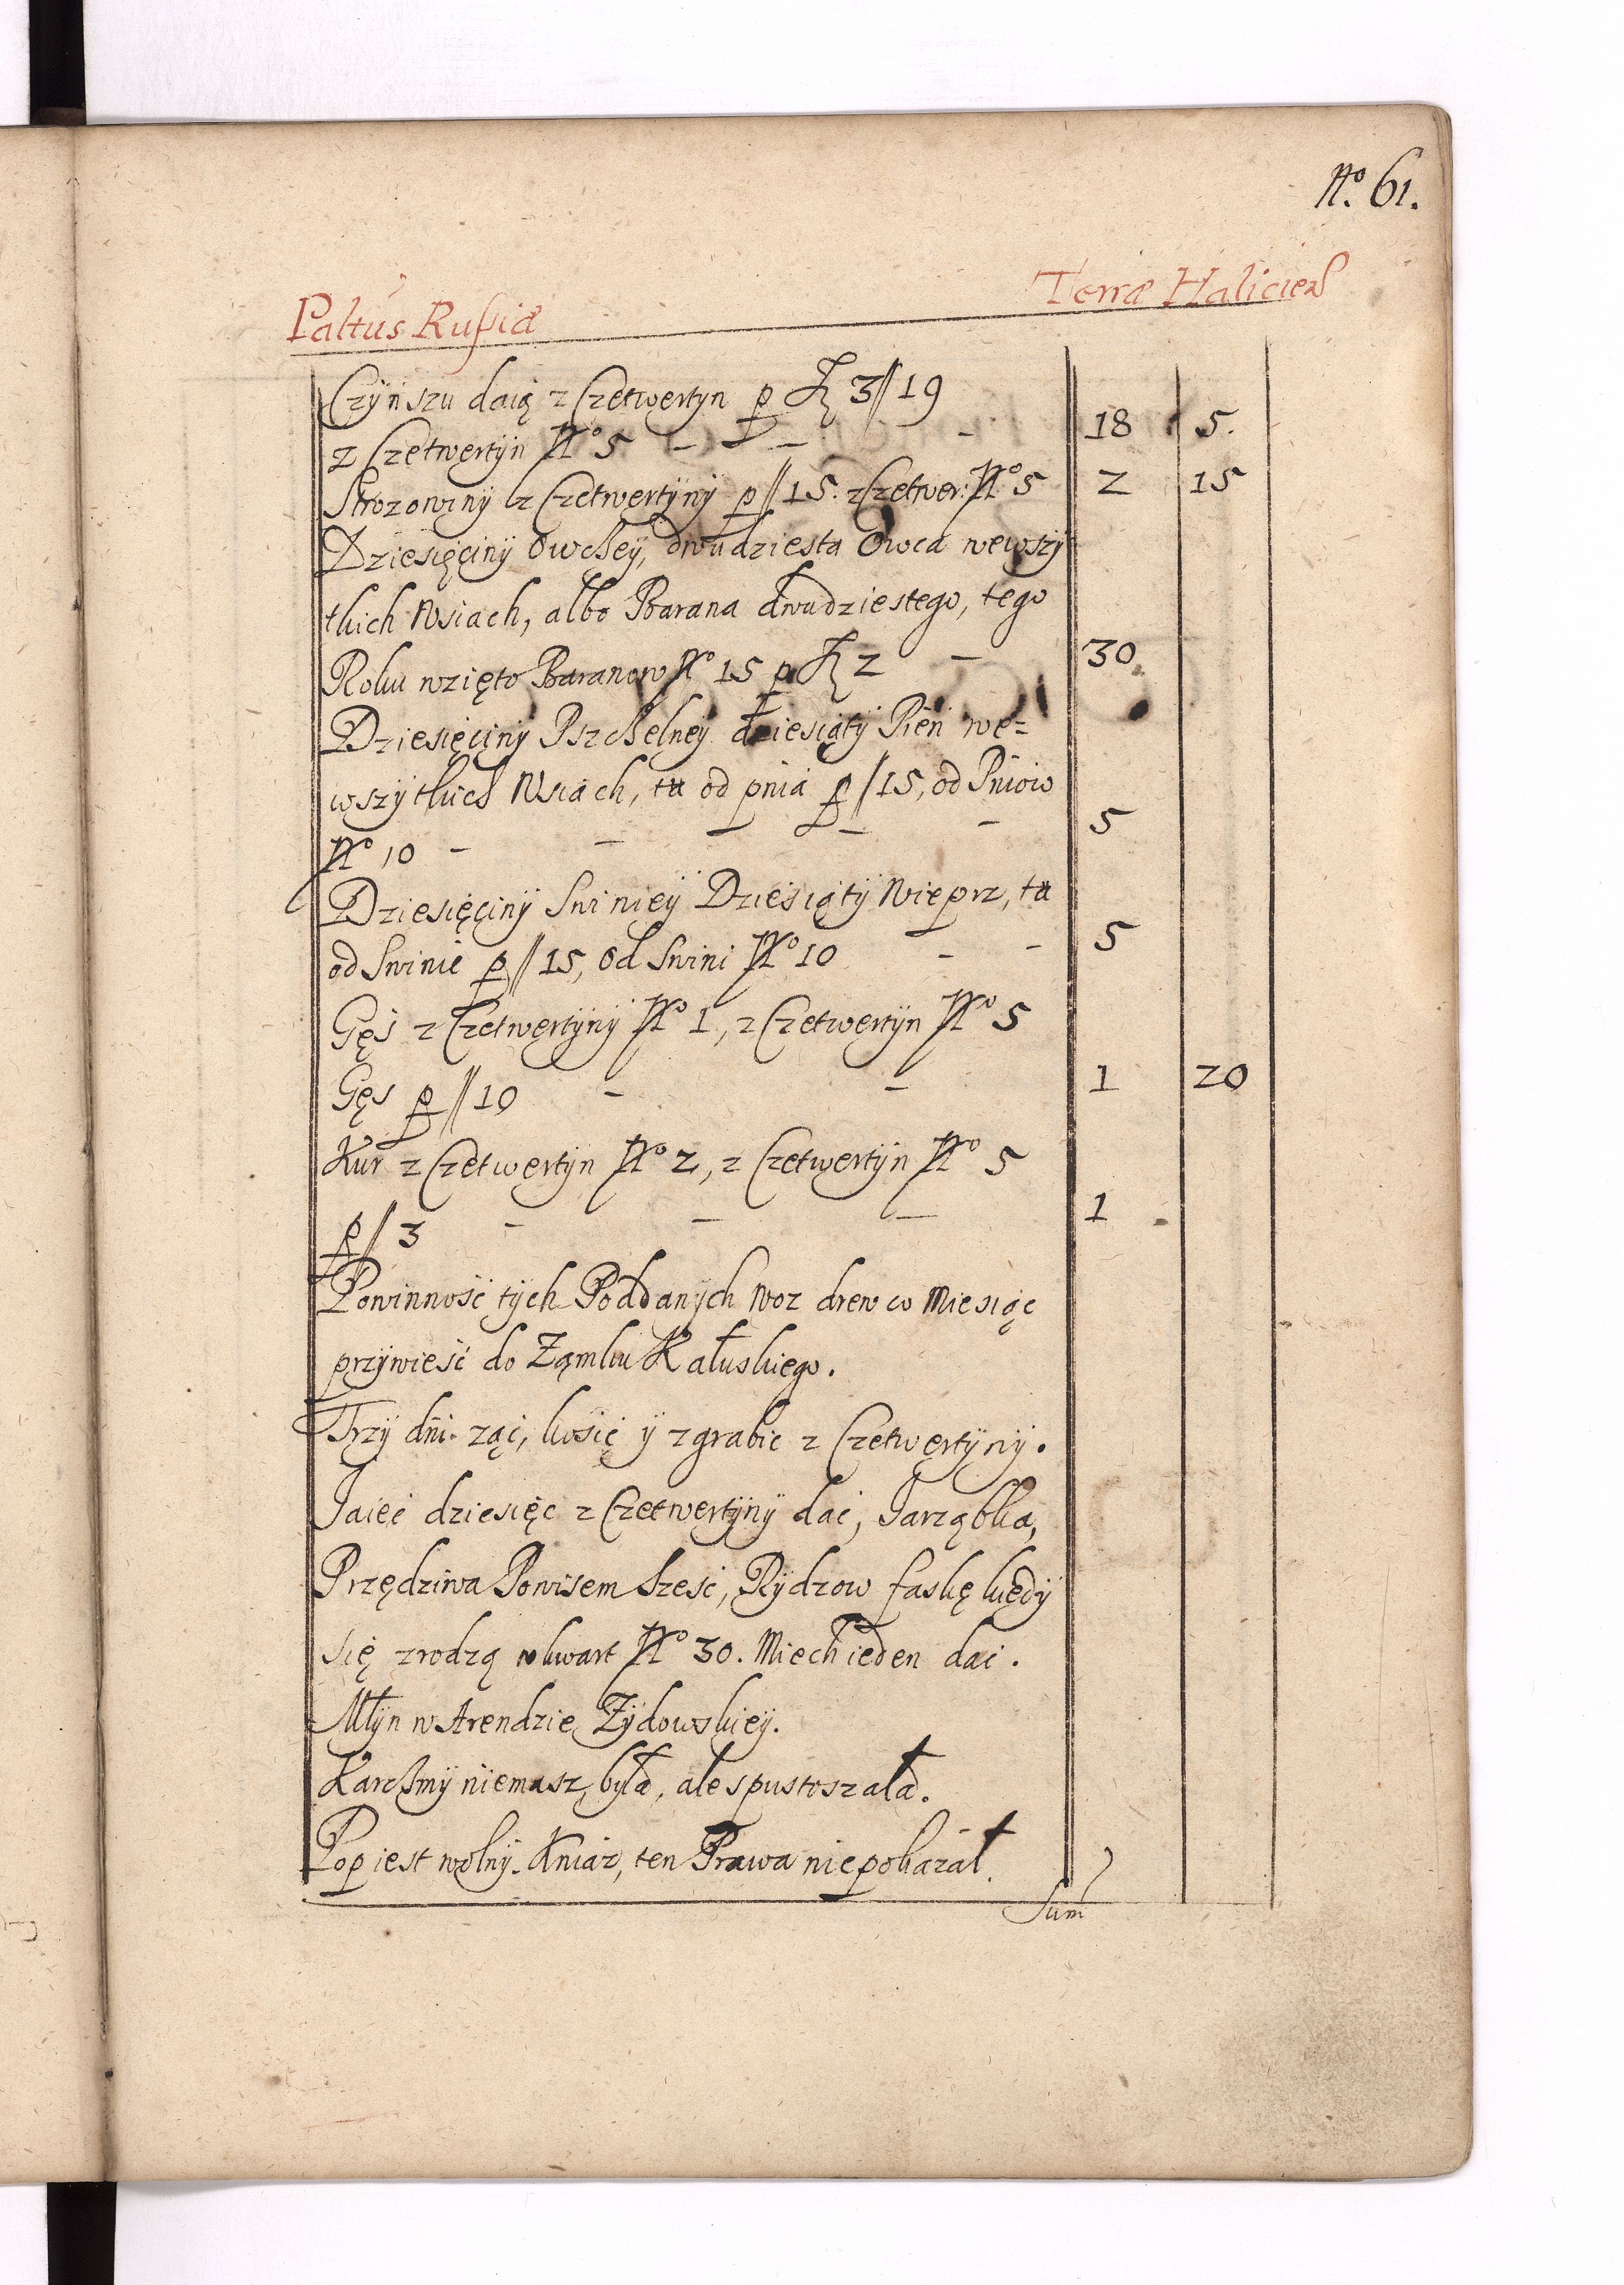 No. 61.
Paltus Rußiæ Terræ Halicien
Czÿnszu daią z Czetwertyn p fl 3 // 19
z Czetwertÿn No 5 - - - 18 5.
Strozowinÿ z Czetwertÿnÿ p // 15. z Czetwer: No 5 2 15
Dziesięcinÿ Owcheÿ, dwudziesta Owca wewszÿ
tkich Wsiach, albo Barana dwudziestego, tego
Roku wzięto Baranow No 15 p fl 2 - 30
Dziesięcinÿ Pszchelneÿ dziesiątÿ Pień we=
wszÿtkich Wsiach, tu od pnia p // 15, od Pniow
No 10 - - - - - 5
Dziesięcinÿ Swineÿ Dziesiątÿ Wieprz, tu
od Swinie p // 15, Od Swini No 10 - - 5
Gęś z Czetwertÿnÿ No 1, z Czetwertÿn No 5
Gęs p // 10 - - 1 20
Kur z Czetwertÿn No 2, z Czetwertÿn No 5
p // 3 - - - 1
Powinność tÿch Poddanÿch Woz drew co Miesiąc
przÿwieść do Zamku Kałuskiego.
Trzÿ dni żąć, kosić ÿ zgrabić z Czetwertÿnÿ.
Jaiec dziesięc z Czetwertÿnÿ dać, Jarząbka,
Przędziwa Powisem Sześć, Rÿdzow faskę kiedÿ
się zrodzą kwart No 30. Miech ieden dać.
Młÿn w Arendzie Żÿdowskieÿ.
Karchmÿ niemasz, była, ale spustoszała.
Pop iest wolnÿ. Kniaz, ten Prawa niepokazał.
Sum